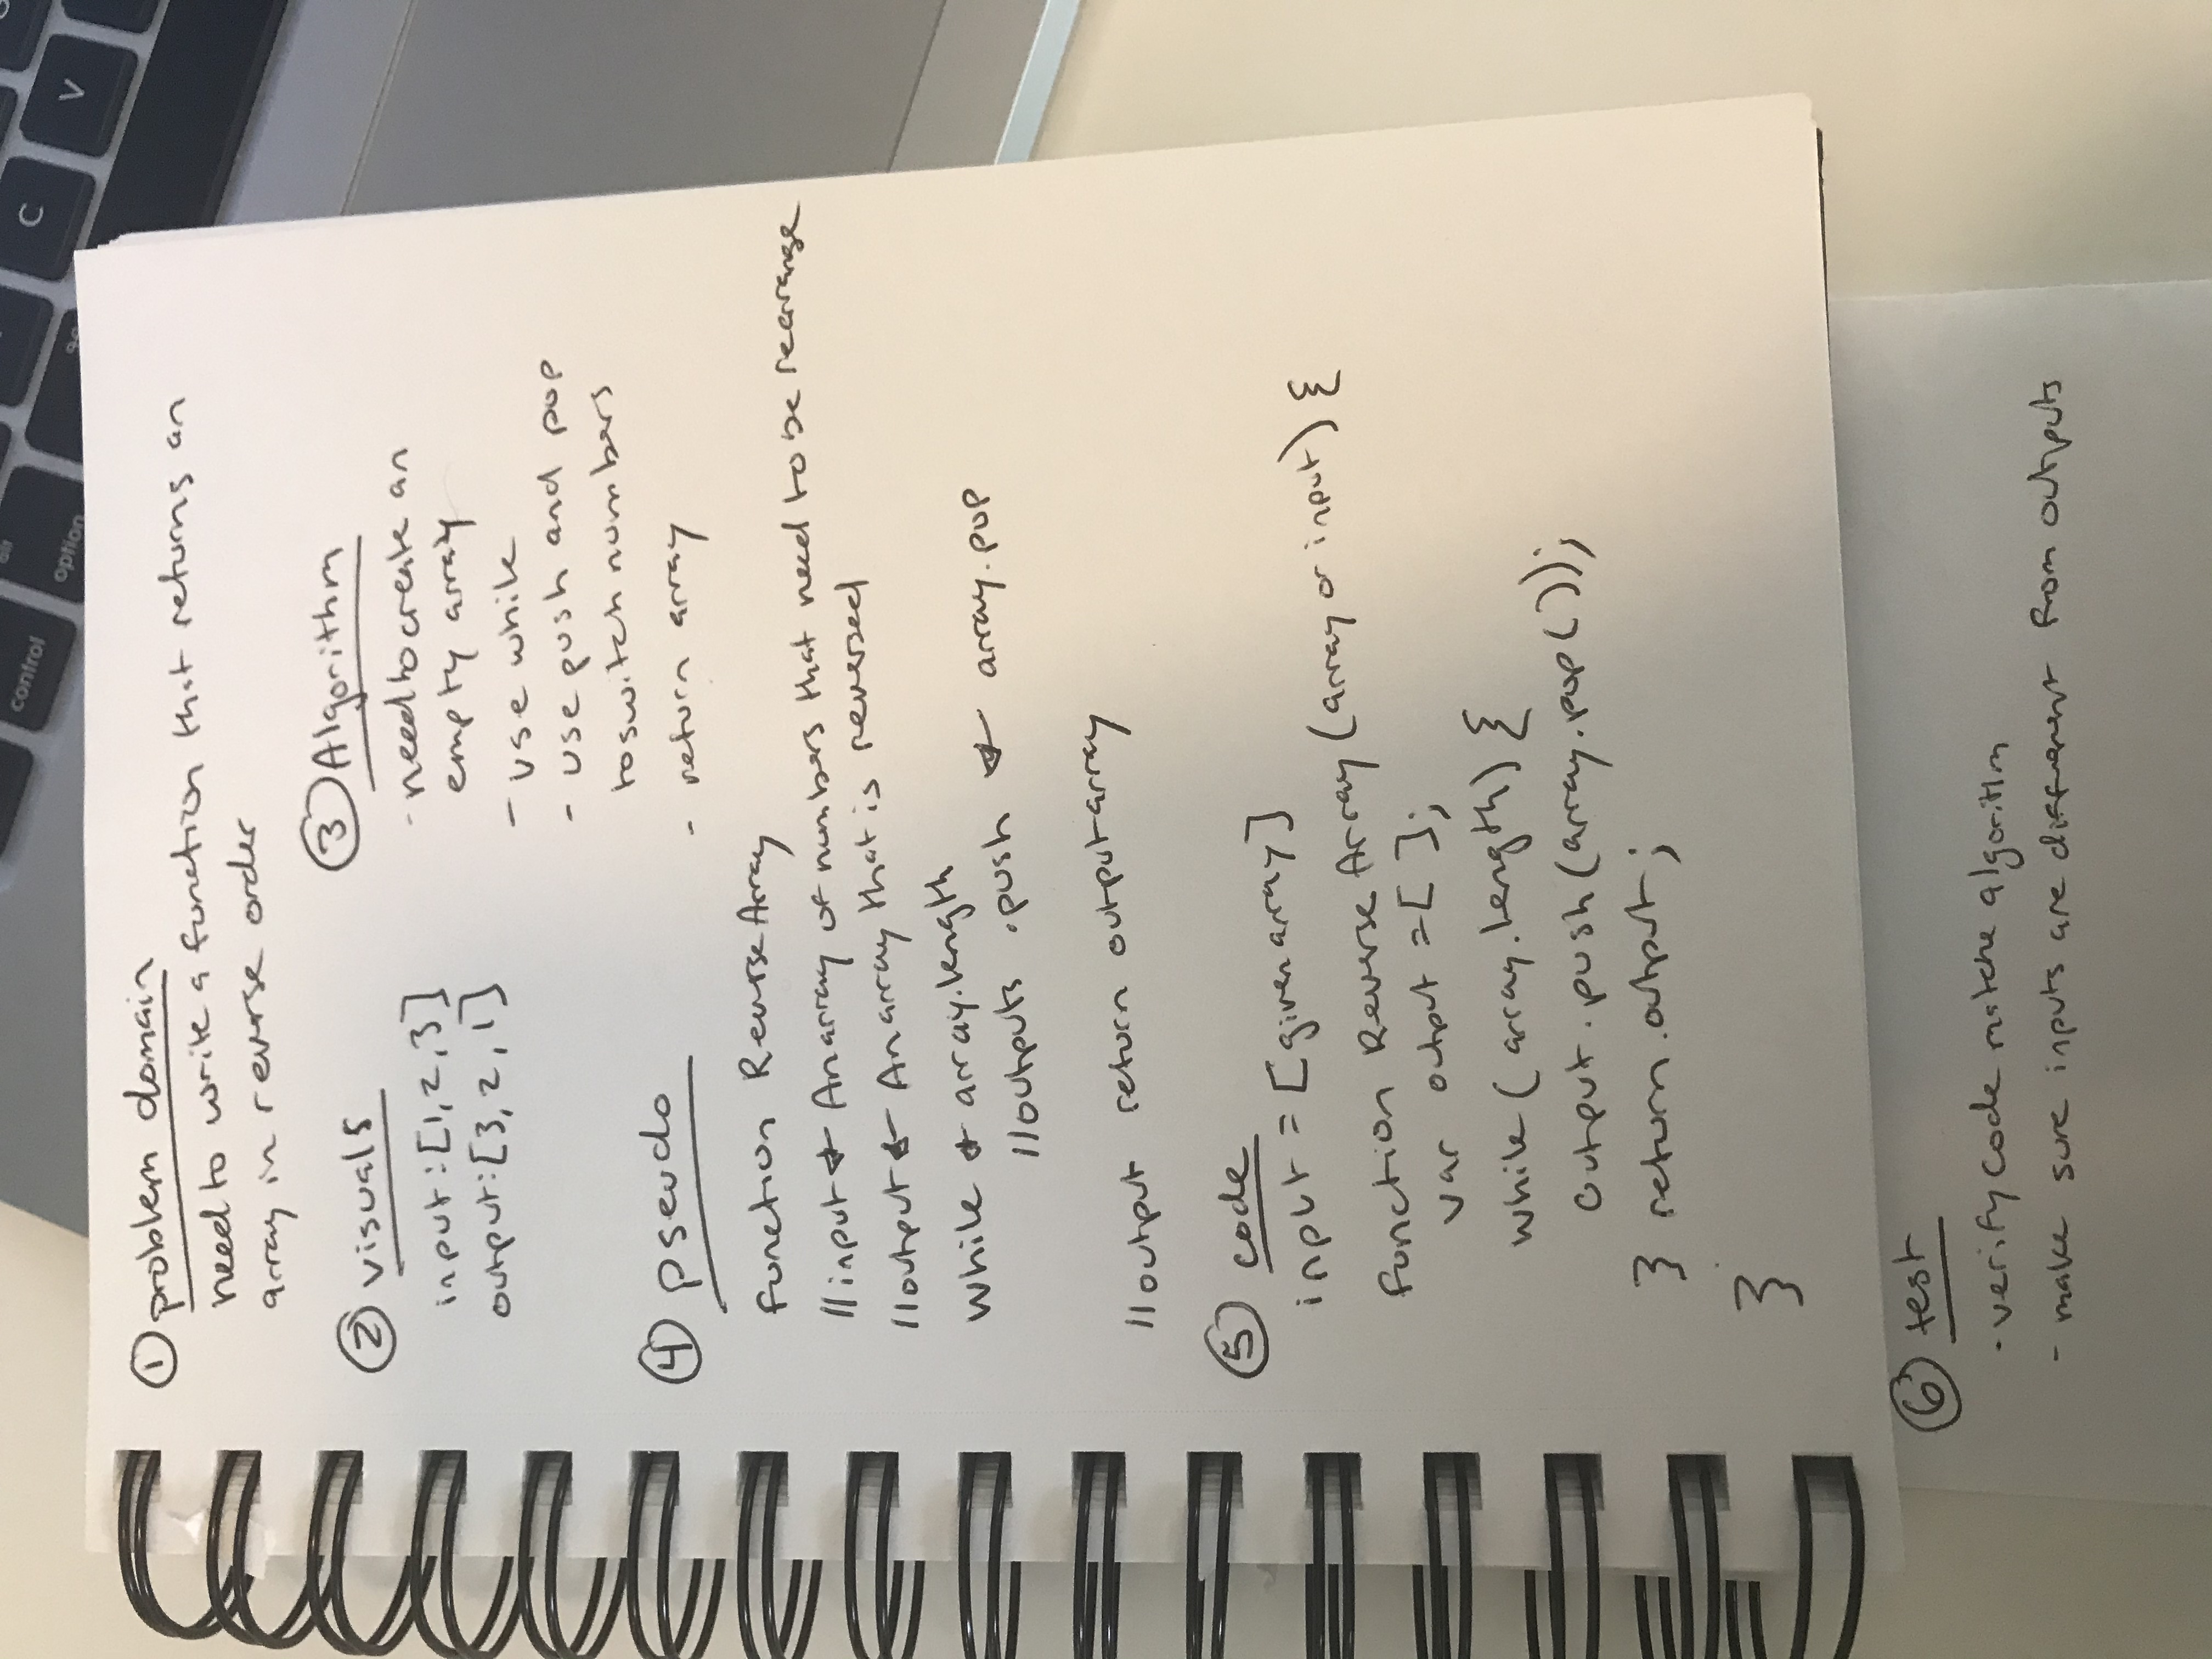 control
alt
option
C
V
① problem domain
need to write a function that returns an
array in reverse order
② visuals
input:[1,2,3]
output:[3,2,1]
③ Algorithm
- need to create an
empty array
- use while
- use push and pop
to switch numbers
- return array
④ pseudo
function ReverseArray
//input ← An array of numbers that need to be rearrange
//output ← An array that is reversed
While ← array.length
//outputs .push ← array.pop
//output return outputarray
⑤ code
input = [given array]
function ReverseArray (array or input) {
var output = [ ];
while ( array.length) {
output.push(array.pop());
} return.output;
}
⑥ test
- verify code matche algorithm
- make sure inputs are different from outputs